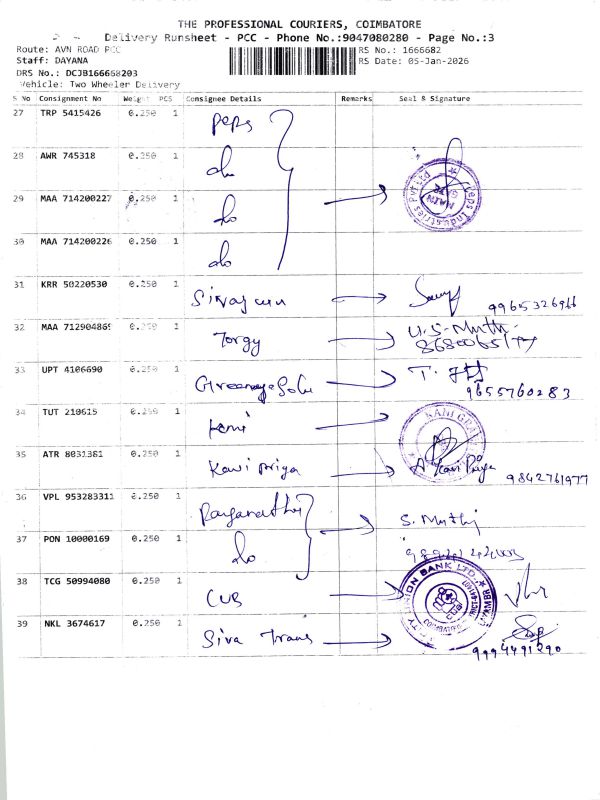 THE PROFESSIONAL COURIERS, COIMBATORE
Delivery Runsheet - PCC - Phone No.:9047080280 - Page No.:3
Route: AVN ROAD PCC
RS No.: 1666682
Staff: DAYANA
RS Date: 05-Jan-2026
DRS No.: DCJB166668203
Vehicle: Two Wheeler Delivery
S No Consignment No Weight PCS Consignee Details Remarks Seal & Signature
27 TRP 5415426 0.250 1 Peps
28 AWR 745318 0.250 1 do
29 MAA 714200227 0.250 1 do
MAIN GATE
Peps Industries Pvt Ltd
30 MAA 714200226 0.250 1 do
31 KRR 50220530 0.250 1
32 MAA 712904869 0.250 1 Torgy
33 UPT 4106690 0.250 1
9655760283
34 TUT 210615 0.250 1
35 ATR 8031381 0.250 1 Kavi priya
9842761977
36 VPL 953283311 0.250 1
37 PON 10000169 0.250 1 do
38 TCG 50994080 0.250 1 CUB
CITY UNION BANK LTD.
CUB
39 NKL 3674617 0.250 1 Siva Trans
9994491290